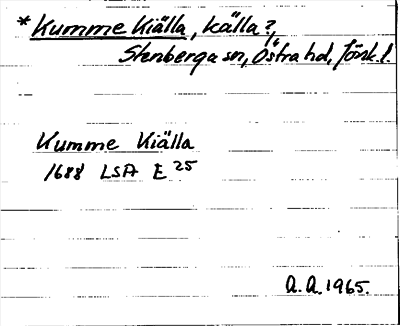 * Kumme Kiälla, källa?,
Stenberga sn, Östra hd, Jönk. l.
Kumme Kiälla
1688 LSA E 25
A.A. 1965.